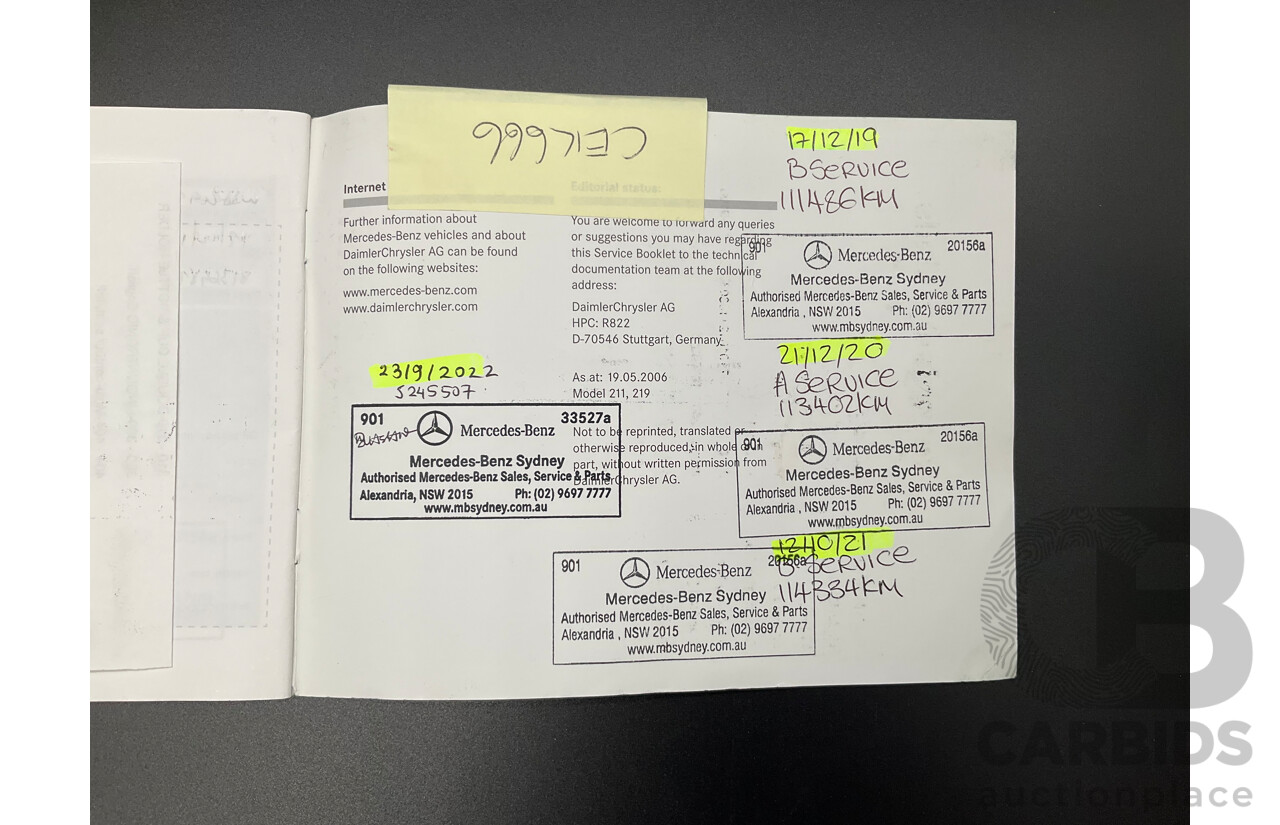 CEIL666
Internet
Editorial status:
Further information about
Mercedes-Benz vehicles and about
DaimlerChrysler AG can be found
on the following websites:
www.mercedes-benz.com
www.daimlerchrysler.com
You are welcome to forward any queries
or suggestions you may have regarding
this Service Booklet to the technical
documentation team at the following
address:
DaimlerChrysler AG
HPC: R822
D-70546 Stuttgart, Germany
As at: 19.05.2006
Model 211, 219
Not to be reprinted, translated or
otherwise reproduced, in whole or in
part, without written permission from
DaimlerChrysler AG.
23/9/2022
S245507
901
33527a
Mercedes-Benz
Mercedes-Benz Sydney
Authorised Mercedes-Benz Sales, Service & Parts
Alexandria, NSW 2015 Ph: (02) 9697 7777
www.mbsydney.com.au
17/12/19
B SERVICE
111486KM
901 Mercedes-Benz 20156a
Mercedes-Benz Sydney
Authorised Mercedes-Benz Sales, Service & Parts
Alexandria , NSW 2015 Ph: (02) 9697 7777
www.mbsydney.com.au
21/12/20
A SERVICE
113402KM
901 Mercedes-Benz 20156a
Mercedes-Benz Sydney
Authorised Mercedes-Benz Sales, Service & Parts
Alexandria , NSW 2015 Ph: (02) 9697 7777
www.mbsydney.com.au
12/10/21
B SERVICE
114334KM
901 Mercedes-Benz 20156a
Mercedes-Benz Sydney
Authorised Mercedes-Benz Sales, Service & Parts
Alexandria , NSW 2015 Ph: (02) 9697 7777
www.mbsydney.com.au
CARBIDS
auctionplace